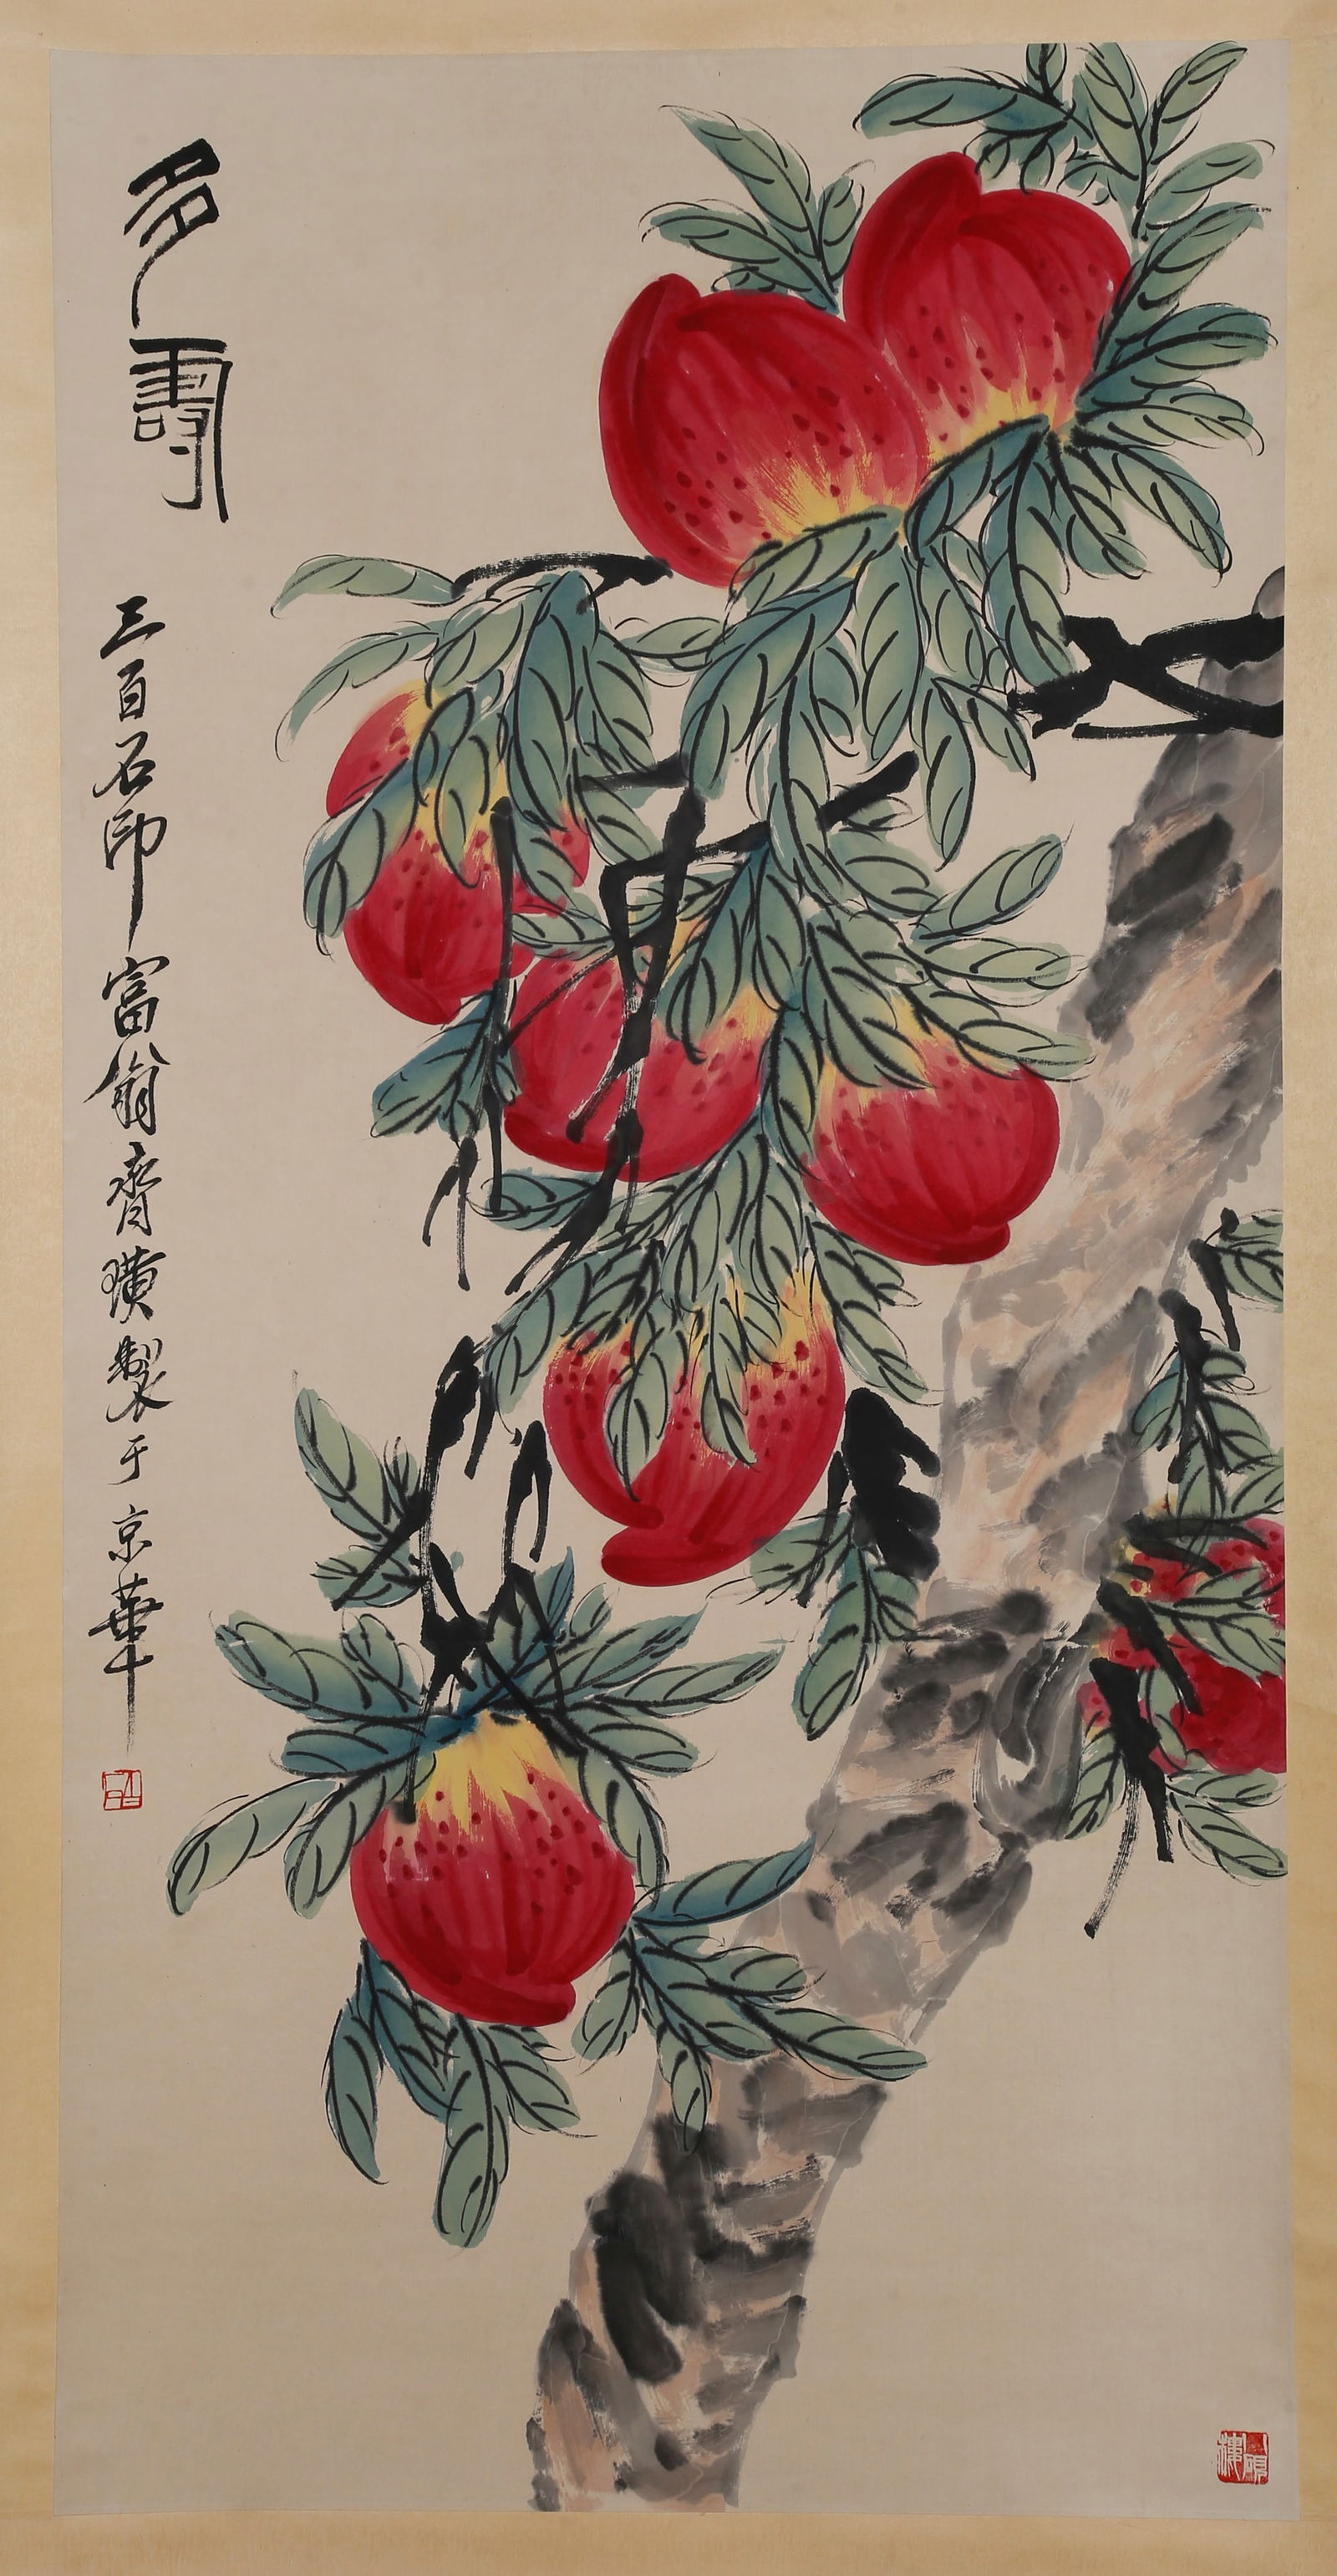 多壽
三百石印富翁齊璜製于京華